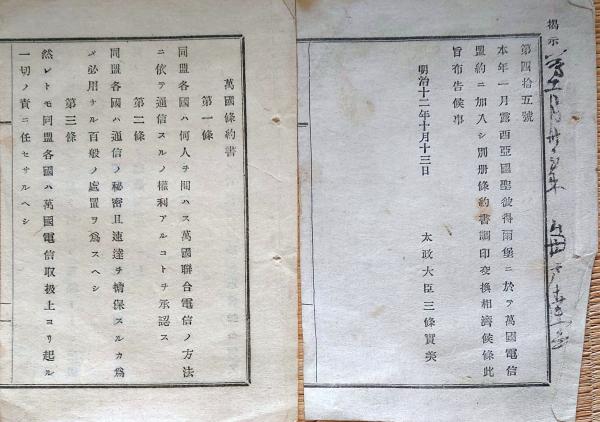 揭示
第四拾五號
本年一月露西亞國聖彼得堡ニ於テ萬國電信
盟約ニ加入シ別册條約書調印交換相濟候條此
旨布告候事
明治十二年十月十三日
太政大臣三條實美
萬國條約書
第一條
同盟各國ハ何人ヲ問ハス萬國聯合電信ノ方法
ニ依テ通信スルノ權利アルコトヲ承認ス
第二條
同盟各國ハ通信ノ秘密且速達ヲ擔保スルカ爲
メ必用ナル百般ノ處置ヲ爲スヘシ
第三條
然レトモ同盟各國ハ萬國電信取扱上ヨリ起ル
一切ノ責ニ任セサルヘシ